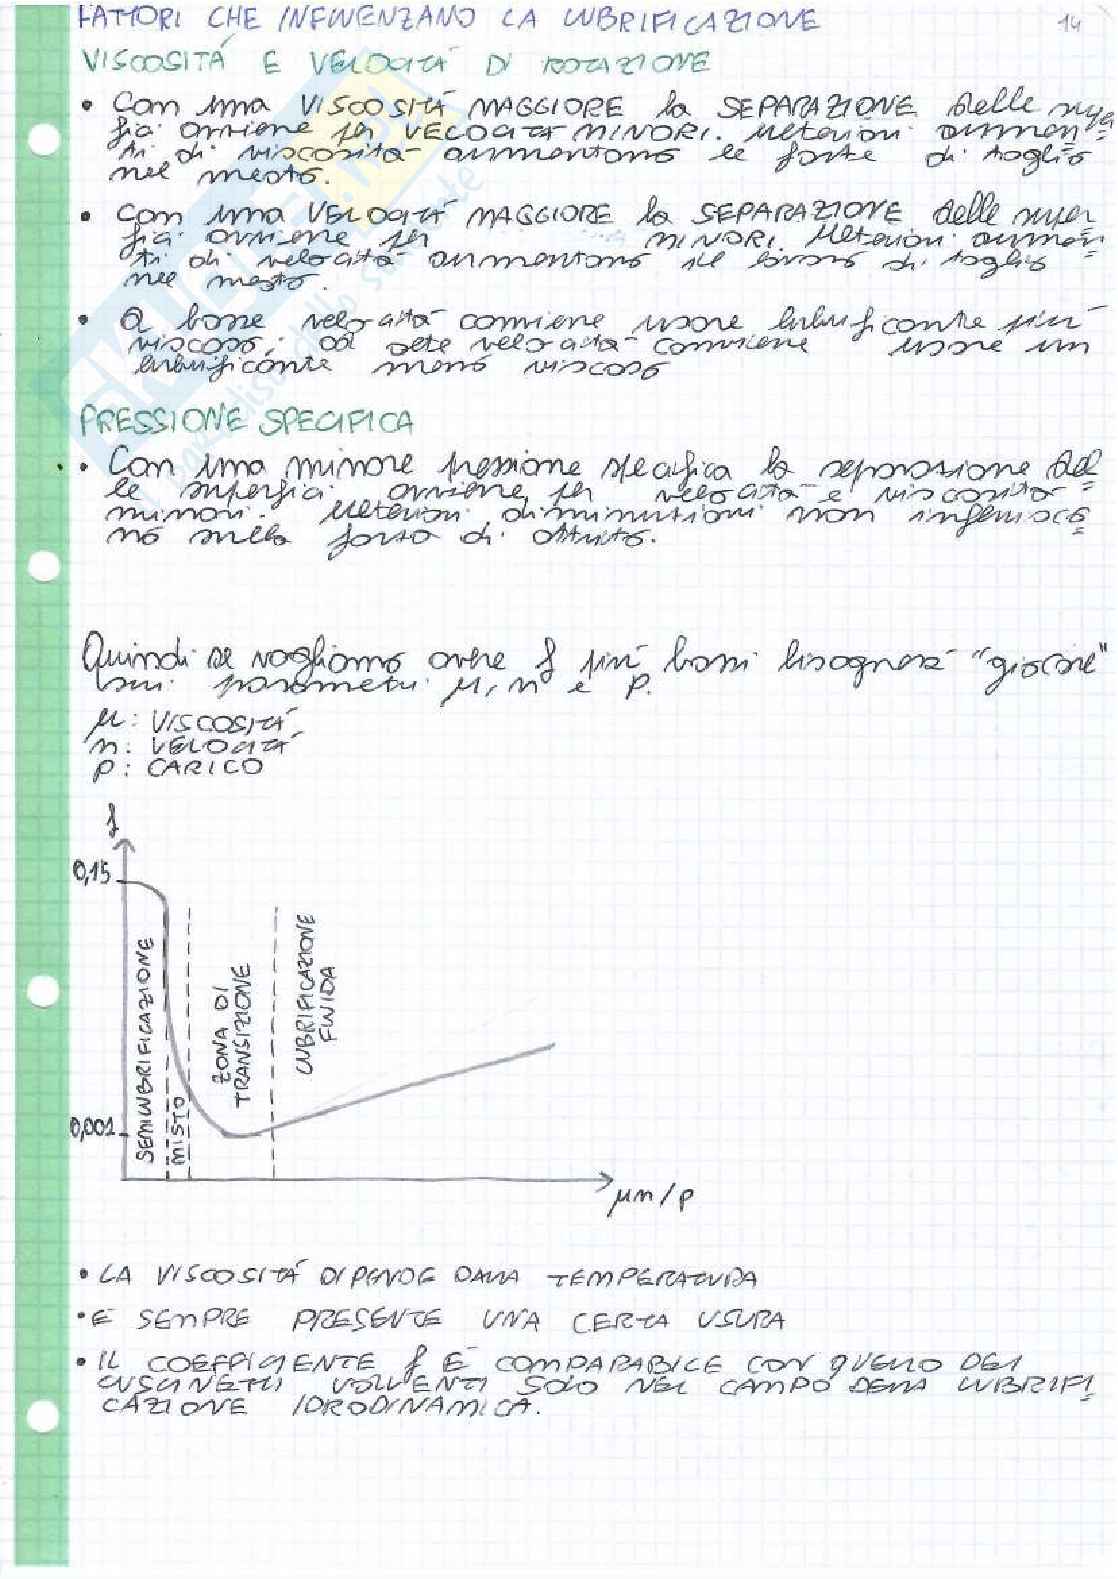 FATTORI CHE INFLUENZANO LA LUBRIFICAZIONE
14
VISCOSITÁ E VELOCITÁ DI ROTAZIONE
• Con una VISCOSITÁ MAGGIORE la SEPARAZIONE delle super
fici avviene per VELOCITÁ MINORI. Ulteriori aumen=
ti di viscositá aumentano le forze di taglio
nel mezzo.
• Con una VELOCITÁ MAGGIORE la SEPARAZIONE delle super
fici avviene per MINORI. Ulteriori aumen=
ti di velocitá aumentano il lavoro di taglio
nel mezzo.
• A basse velocitá conviene usare lubrificante piú
viscoso; ad alte velocitá conviene usare un
lubrificante meno viscoso
PRESSIONE SPECIFICA
• Con una minore pressione specifica la separazione del=
le superfici avviene per velocitá e viscositá
minori. Ulteriori diminuzioni non influisco=
no sulla forza di attrito.
Quindi se vogliamo avere f piú bassi bisognerá "giocare"
sui parametri μ, n e p.
μ: VISCOSITÁ
n: VELOCITÁ
p: CARICO
f
0,15
0,001
SEMILUBRIFICAZIONE
MISTO
ZONA DI
TRANSIZIONE
LUBRIFICAZIONE
FLUIDA
μn/p
• LA VISCOSITÁ DIPENDE DALLA TEMPERATURA
• É SEMPRE PRESENTE UNA CERTA USURA
• IL COEFFICIENTE f É COMPARABILE CON QUELLO DEI
CUSCINETTI VOLVENTI SOLO NEL CAMPO DELLA LUBRIFI
CAZIONE IDRODINAMICA.